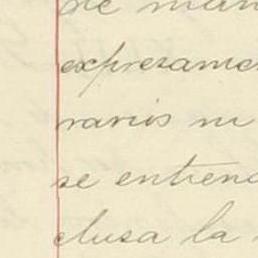 de man
expresamen
rarios ni
se entiend
clusa la